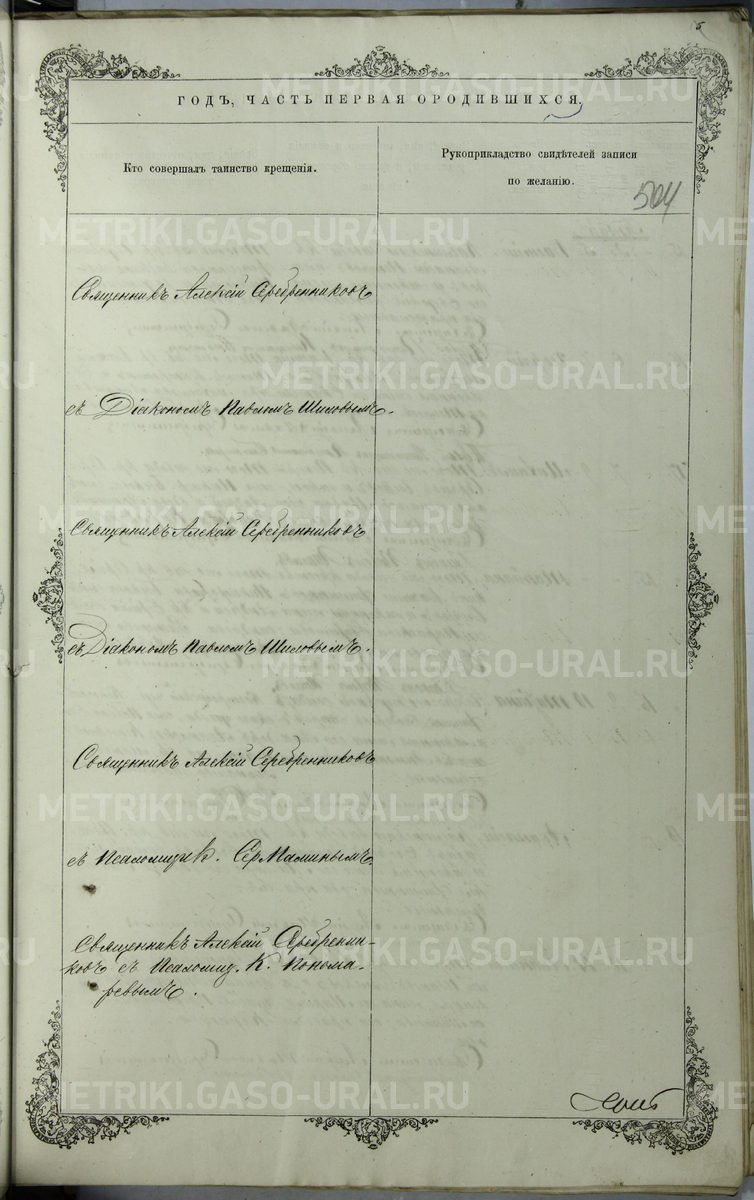 5
ГОДЪ, ЧАСТЬ ПЕРВАЯ О РОДИВШИХСЯ.
Кто совершалъ таинство крещенія.
Рукоприкладство свидѣтелей записи
по желанію.
504
Священникъ Алексій Серебренниковъ
съ Діакономъ Павломъ Шиловымъ.
Священникъ Алексій Серебренниковъ
съ Діакономъ Павломъ Шиловымъ.
Священникъ Алексій Серебренниковъ
съ Псаломщик. Сер. Маминымъ.
Священникъ Алексій Серебренни-
ковъ съ Псаломщ. К. Понома-
ревымъ.
METRIKI.GASO-URAL.RU